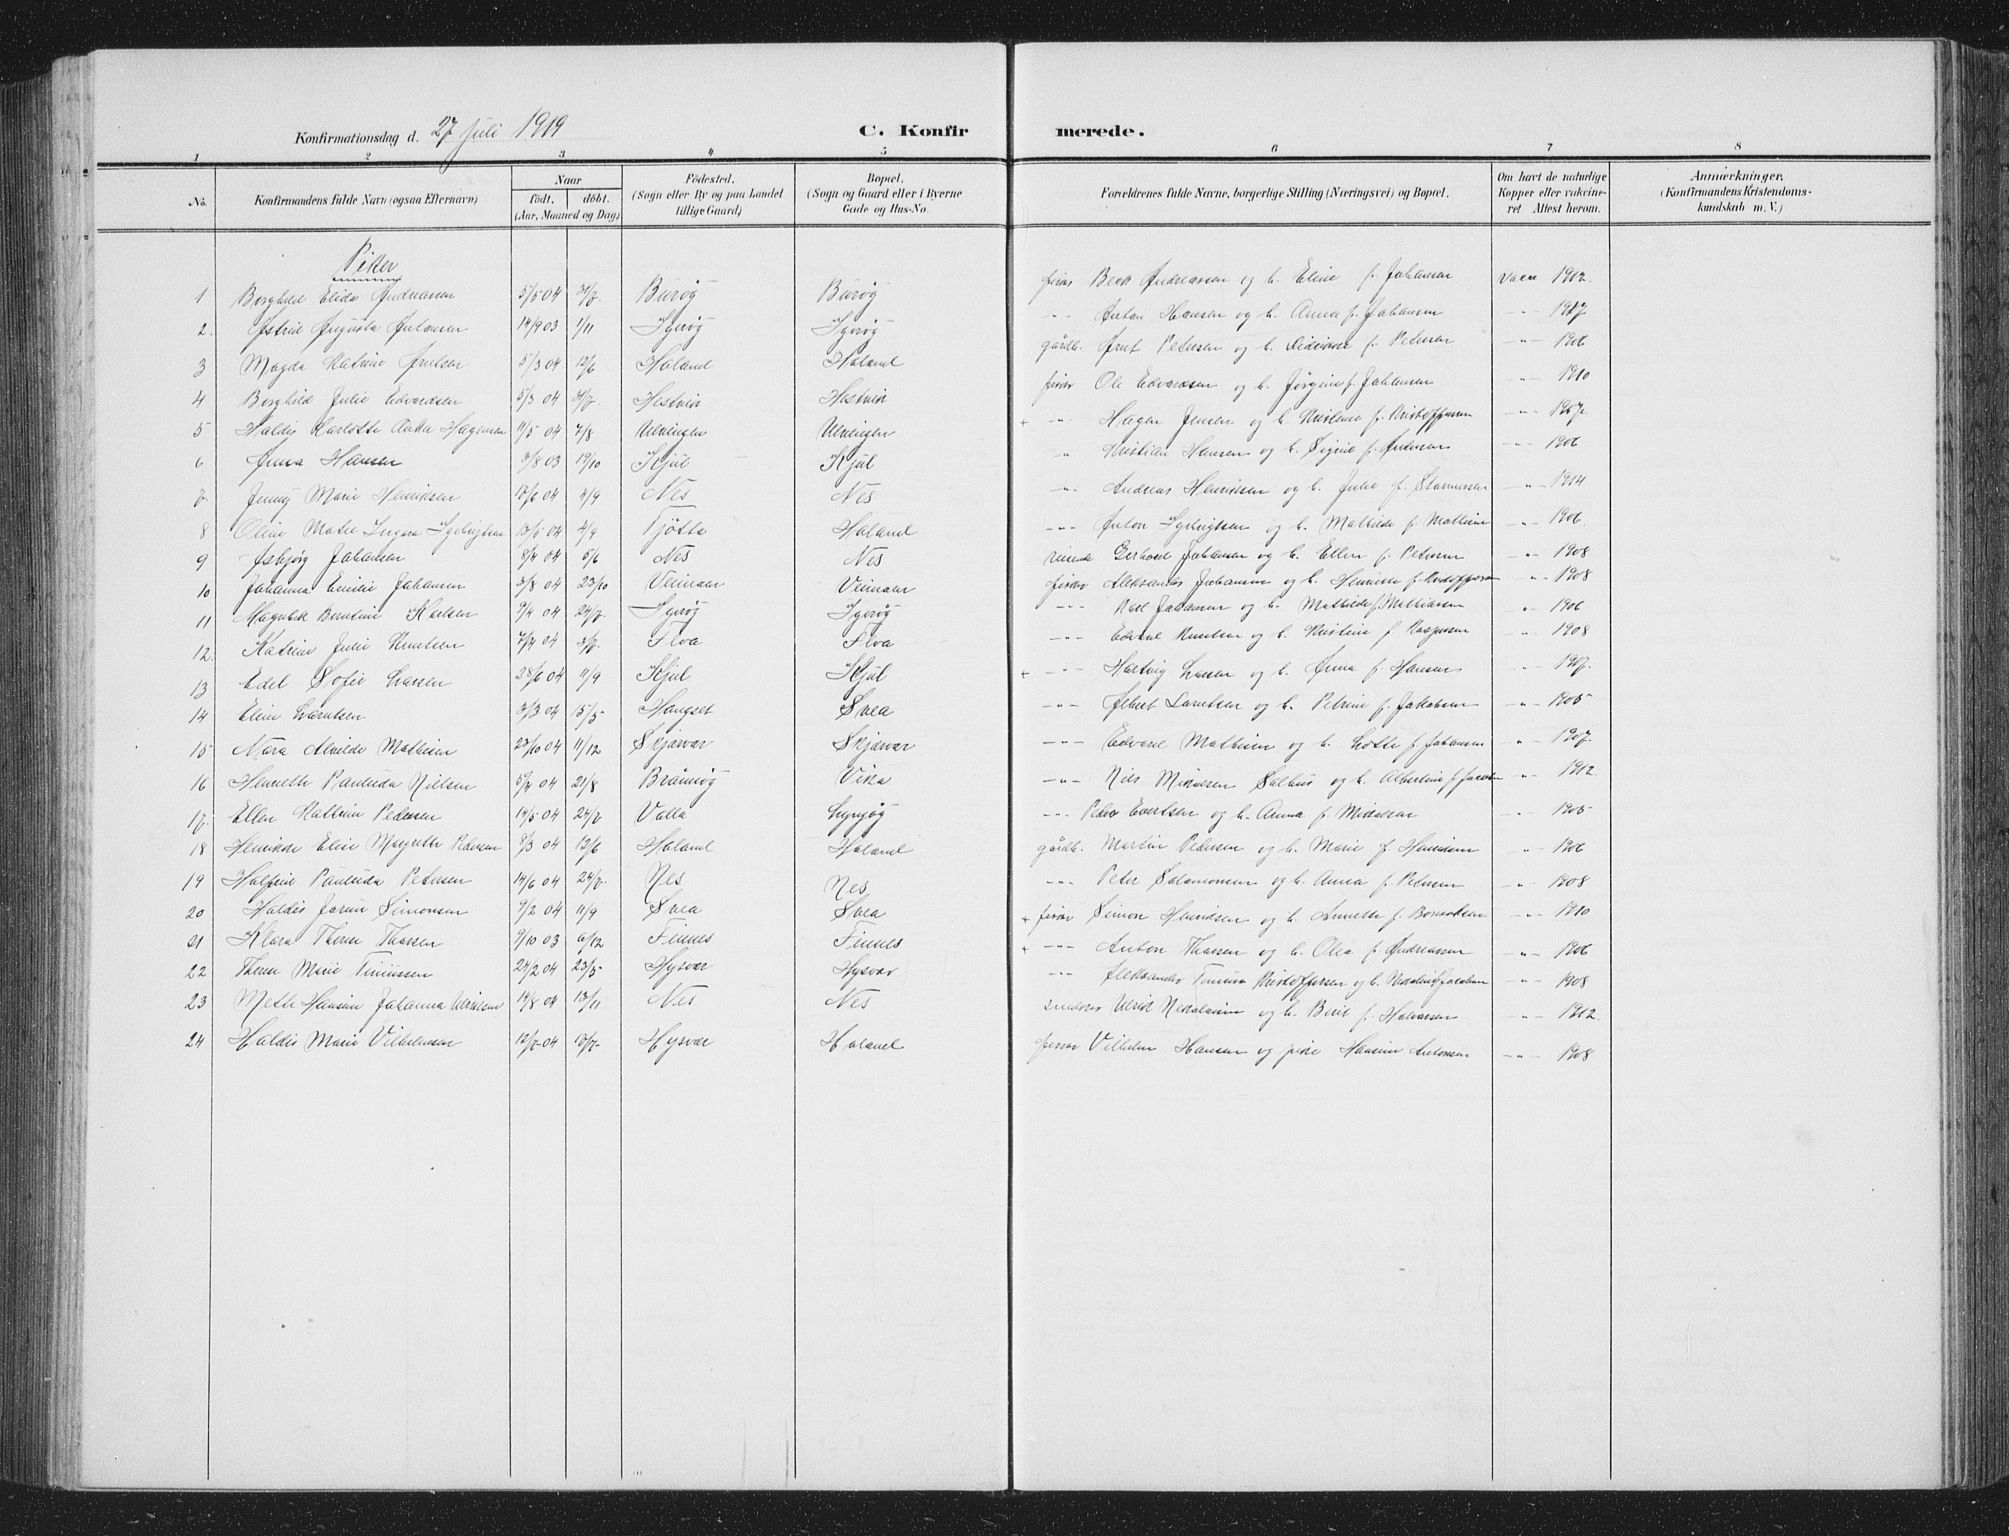 Konfirmationsdag d. 27 juli 1919 C. Konfirmerede.
1 2 3 4 5 6 7 8
No. Konfirmandens fulde Navn (ogsaa Efternavn) Naar födt. döbt. (Aar, Maaned og Dag) Födested. (Sogn eller By og paa Landet tillige Gaard) Bopæl. (Sogn og Gaard eller i Byerne Gade og Hus-No. Forældrenes fulde Navne, borgerlige Stilling (Næringsvei) og Bopæl. Om havt de naturlige Kopper eller vakcineret. Attest herom. Anmærkninger, (Konfirmandens Kristendomskundskab m. V.)
Piker
1 Borghild Elida Andreassen 5/5 04 Burøy Burøy fisker Andreassen og h. Eline f. Johansen vacc 1912.
2. Astrid Augusta Antonsen 14/9 03 1/11 Igerøy Igerøy -"- Anton Hansen og h. Anna f. Johansen -"- 1907
3 Magda Katrine Arntsen 5/3 04 12/6 Haland Haland gårdb. Arnt Petersen og h. f. Petersen -"- 1906
4 Borghild Julie Edvardsen 5/3 04 Hestvik Hestvik fisker Ole Edvardsen og h. Jørgine f. Johansen -"- 1910
5 Haldis Karlotte Hagensen 11/5 04 7/8 Ulvingen Ulvingen + -"- Hagen Jensen og h. Kristine f. Kristoffersen -"- 1907
6 Anna Hansen 3/8 03 19/10 Kjul Kjul " Kristian Hansen og h. Sigrid f. Andersen -"- 1906
7 Jenny Marie Henriksen 17/6 04 4/9 Nes Nes -"- Andreas Henriksen og h. Julie f. -"- 1914
8 Oline 13/5 04 4/9 Tjøtta Haland -"- Anton og h. Mathilde f. -"- 1906.
9 Asbjørg Johansen 8/4 04 5/6 Nes Nes Gerhard Johansen og h. Ellen f. Petersen -"- 1908
10 Johanna Emilie Johansen 3/8 04 23/10 Veimaar Veimaar fisker Aleksander Johansen og h. Henriette f. Kristoffersen -"- 1908
11 Berntine Karlsen 9/4 04 24/7 Igerøy Igerøy -"- Karl Johansen og h. Mathilde f. Mathiassen " 1906
12. Katrine Julie Knutsen 7/4 04 3/7 Flva Flva -"- Edvard Knutsen og h. Kristine f. Kaspersen -"- 1908
13 Edel Sofie Larsen 28/6 04 11/9 Kjul Kjul + -"- Hartvig Larsen og h. Anna f. Hansen -"- 1907.
14 Elin Lorntsen 3/3 04 15/5 Haugset Svea -"- Albert Lorntsen og h. Petrine f. Jakobsen -"- 1905
15 Nora Alvilde Mathisen 23/10 04 11/12 Skjærvær Skjærvær -"- Edvard Mathisen og h. Lotte f. Johansen " 1907.
16 Henrette Paulida Nielsen 5/4 04 21/8 Brännøy Vika -"- Nils Mikalsen Salhus og h. Albertine f. -"- 1912
17 Ellen Kattrine Pedersen 14/5 04 24/7 Valla -"- Peder Evertsen og h. Anna f. Mikkelsen -"- 1905
18 Henrikke Elise Magrethe Pedersen 8/3 04 12/6 Haland Haland gårdb. Martin Pedersen og h. Marie f. Henriksen -"- 1906
19 Halfrid Paulida Petersen 14/6 04 24/7 Nes Nes -"- Peter Salamonsen og h. Anna f. Petersen -"- 1908
20 Haldis Jorun Simonsen 9/2 04 11/9 Svea Svea + fisker Simon Henriksen og h. Annette f. -"- 1910
21 Klara Therese Thorsen 9/10 03 6/12 Finnes Finnes + -"- Anton Thorsen og h. Olea f. Andreassen -"- 1906
22 Therese Marie 24/2 04 23/5 Hysvær Hysvær -"- Aleksander Kristoffersen og h. f. Jacobsen -"- 1908
23 Mette Hansine Johanna Ulriksen 14/8 04 13/11 Nes Nes Ulrik og h. Berit f. Halvorsen -"- 1912.
24 Haldis Marie Vilhelmsen 12/7 04 Hysvær Haland fisker Vilhelm Hansen og pike Hansine Antonsen -"- 1908